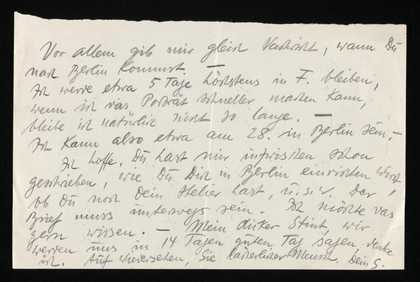 Vor allem gib mir gleich Nachricht, wann Du
nach Berlin kommst. – Ich
werde etwa 5 Tage höchstens in F. bleiben,
wenn ich das Porträt schneller machen kann,
bleibe ich natürlich nicht so lange. —
Ich kann also etwa am 28. in Berlin sein. –
Ich hoffe, Du hast mir inzwischen schon
geschrieben, wie Du Dich in Berlin einrichten wirst,
ob Du noch Dein Atelier hast, u.s.w. Der
Brief muss unterwegs sein. Ich möchte das
gern wissen. — Mein dicker Stint, wir
werden uns in 14 Tagen guten Tag sagen, denke
ich. Auf Wiedersehen, Sie Mensch. Dein G.